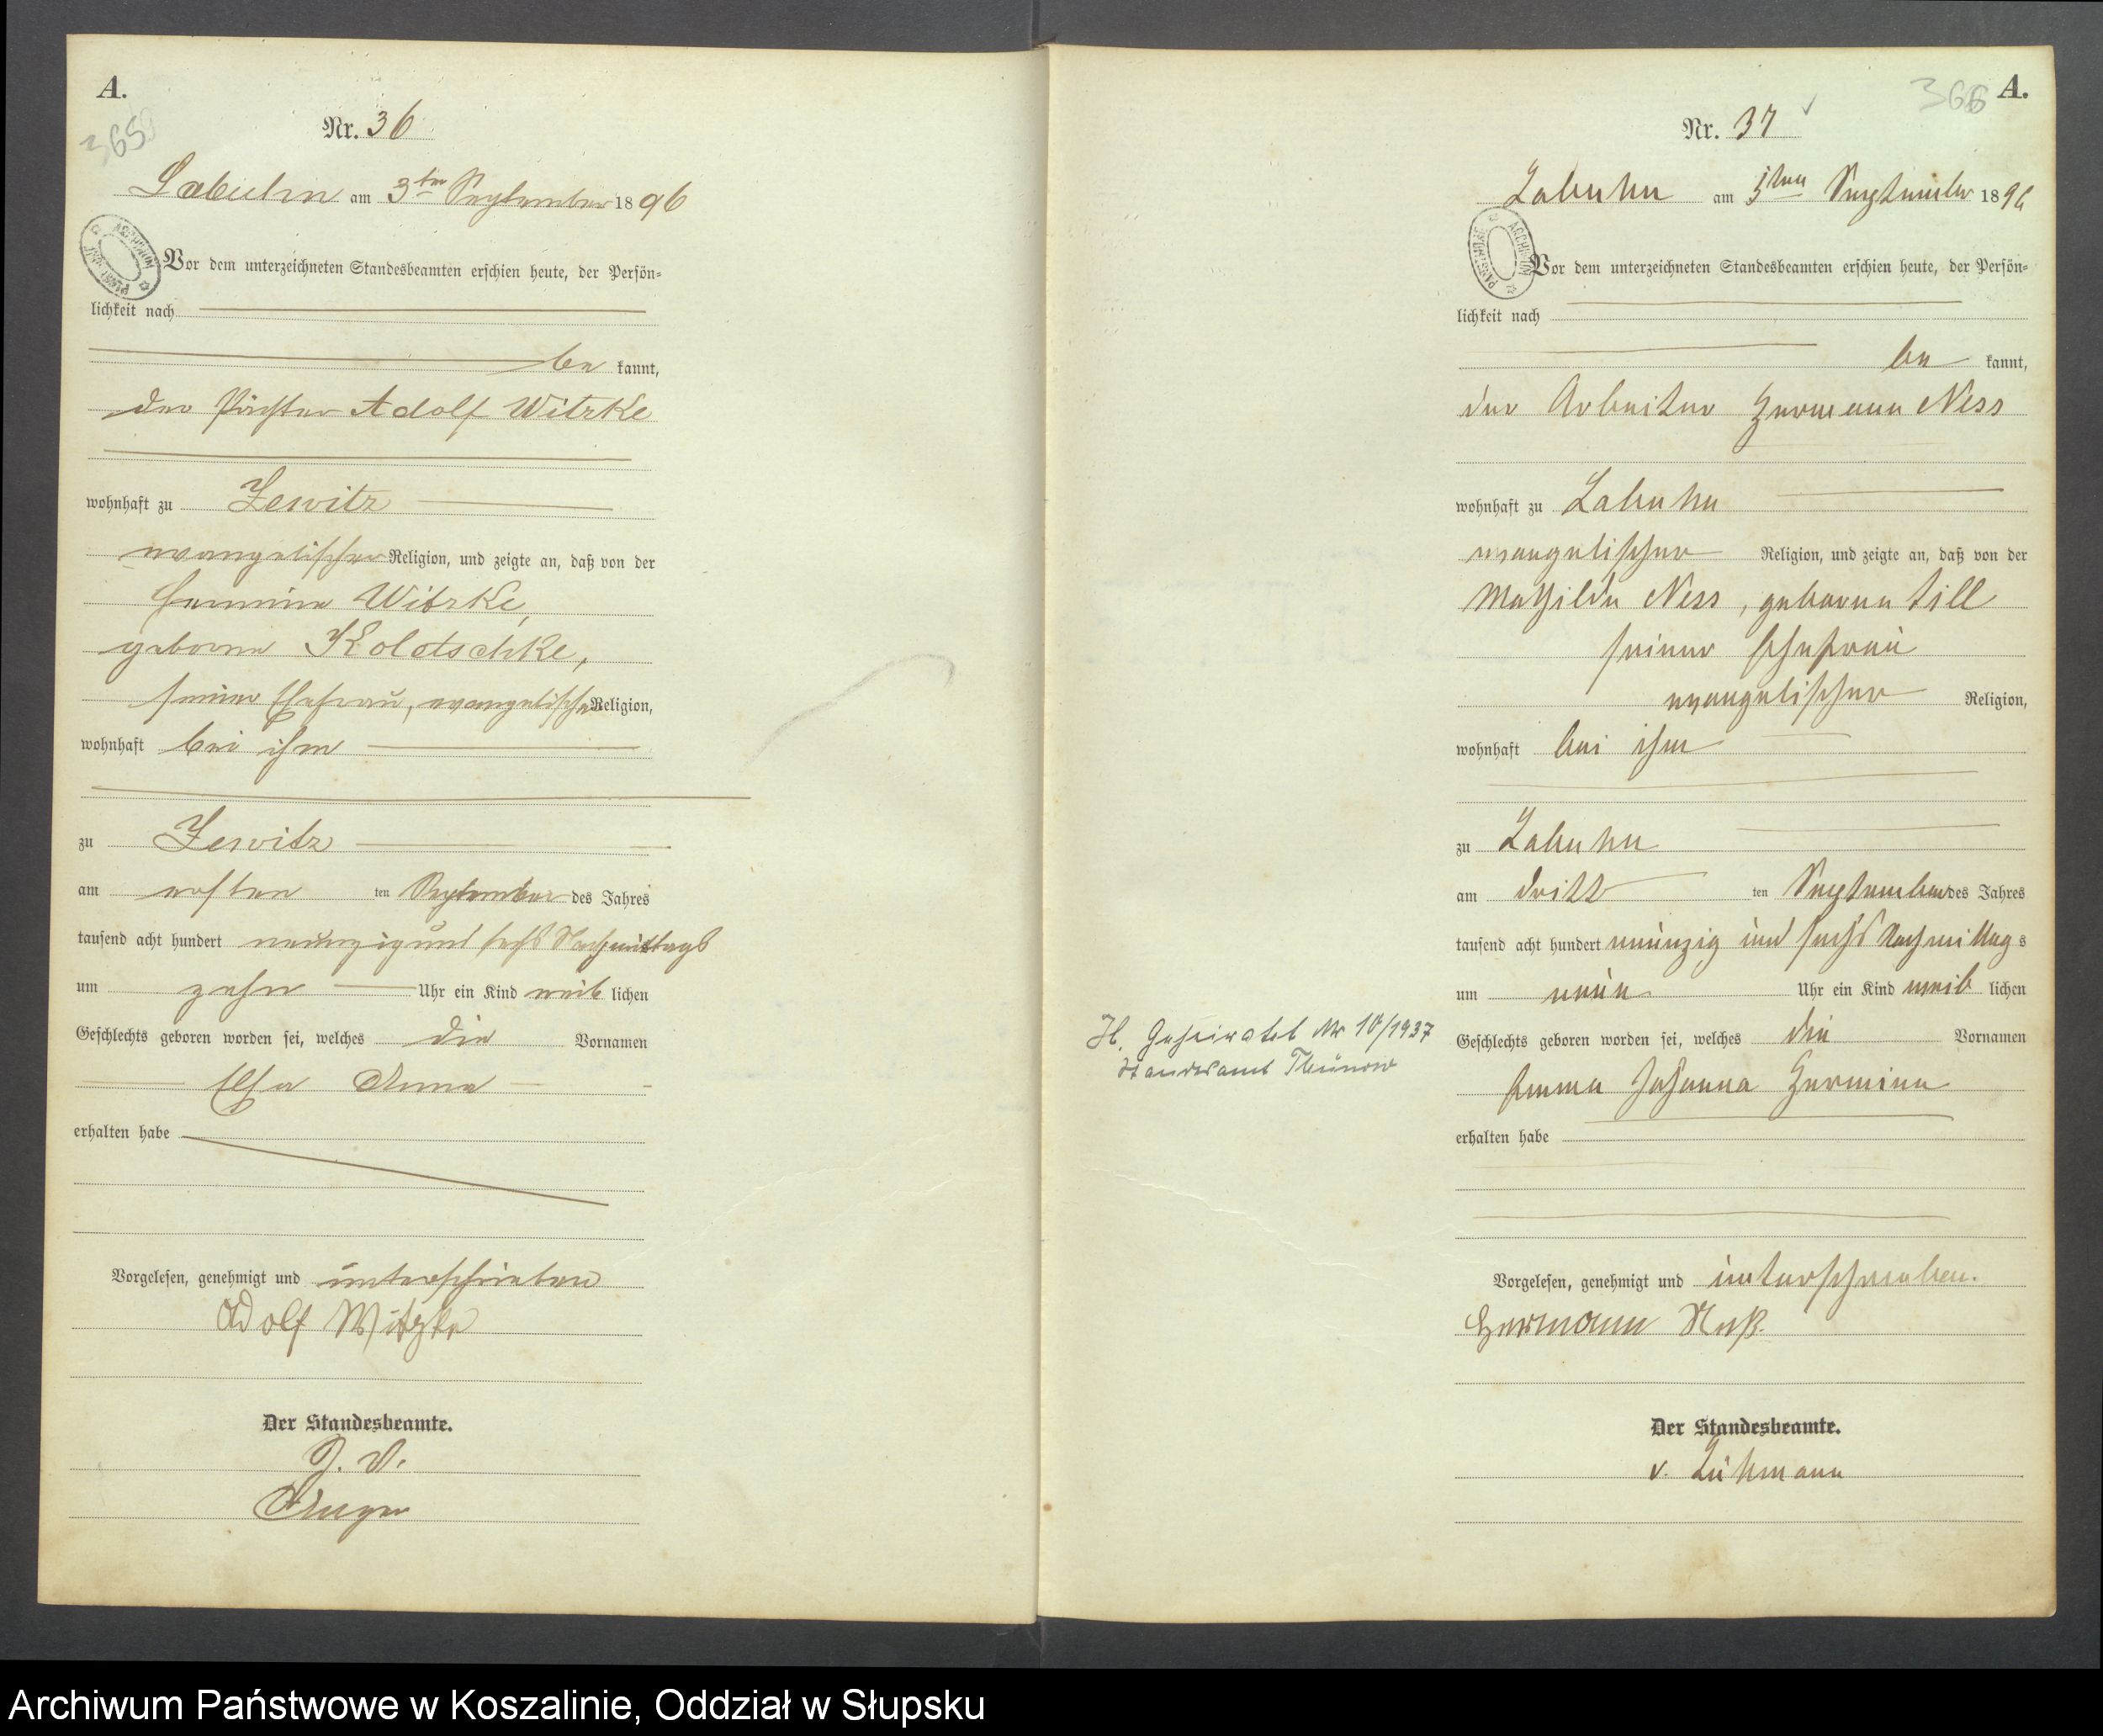 A.
365
Nr. 36
Labuhn am 3ten September 1896
Vor dem unterzeichneten Standesbeamten erschien heute, der Persön=
lichkeit nach
be kannt,
der Pächter Adolf Witzke
wohnhaft zu Zewitz
evangelischer Religion, und zeigte an, daß von der
Witzke,
geborene Kolotschke,
seiner Ehefrau, evangelischer Religion,
wohnhaft bei ihm
zu Zewitz
am ersten ten September des Jahres
tausend acht hundert neunzig und sechs Nachmittags
um zehn Uhr ein Kind weib lichen
Geschlechts geboren worden sei, welches die Vornamen
Elsa Anna
erhalten habe
Vorgelesen, genehmigt und unterschrieben
Adolf Witzke
Der Standesbeamte.
J. V.
366 A.
Nr. 37
Labuhn am 5ten September 1896
Vor dem unterzeichneten Standesbeamten erschien heute, der Persön=
lichkeit nach
be kannt,
der Arbeiter Hermann Ness
wohnhaft zu Labuhn
evangelischer Religion, und zeigte an, daß von der
Mathilde Ness, geborene Till
seiner Ehefrau
evangelischer Religion,
wohnhaft bei ihm
zu Labuhn
am dritt ten September des Jahres
tausend acht hundert neunzig und sechs Nachmittag s
um neun Uhr ein Kind weib lichen
Geschlechts geboren worden sei, welches die Vornamen
Emma Johanna Hermine
erhalten habe
H. Geheiratet Nr 10/1937
Standesamt Thünow
Vorgelesen, genehmigt und unterschrieben.
Hermann Neß.
Der Standesbeamte.
v. Lühmann
Archiwum Państwowe w Koszalinie, Oddział w Słupsku